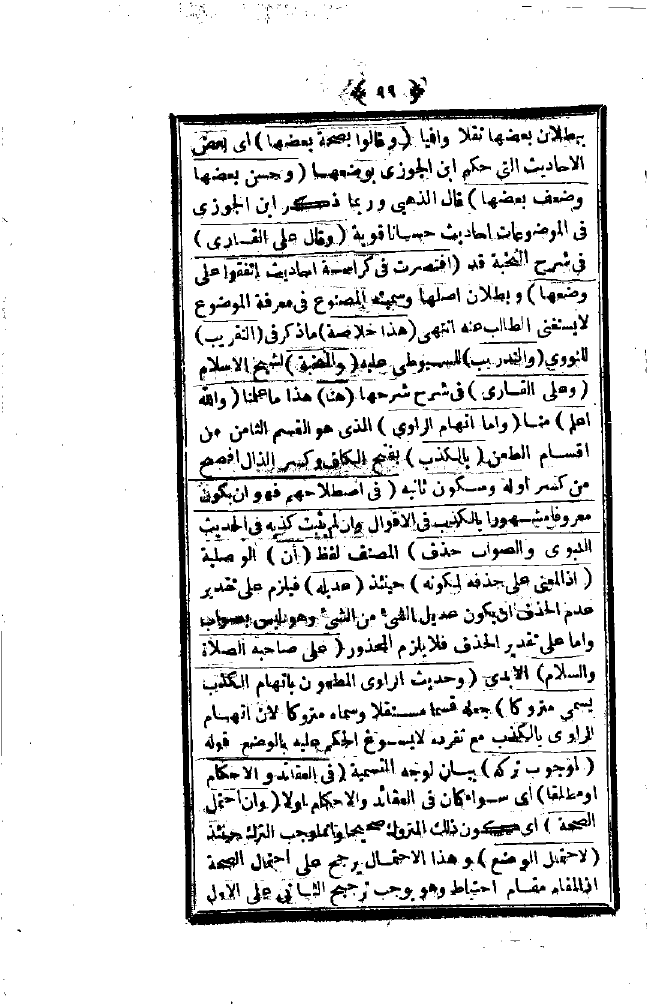 ﴿ ٩٩ ﴾
ببطلان بعضها نقلا وافيا (وقالوا بصحة بعضها) اى بعض
الاحاديث التى حكم ابن الجوزى بوضعها (وحسن بعضها
وضعف بعضها) قال الذهبى وربما ذكر ابن الجوزى
فى الموضوعات احاديث حسانا قوية (وقال على القارى)
فى شرح النخبة قد (اقتصرت فى كراسة احاديث اتفقوا على
وضعها) وبطلان اصلها وسميته المصنوع فى معرفة الموضوع
لايستغنى الطالب عنه انتهى (هذا خلاصة) ماذكر فى (التقريب)
للنووي (والتدريب) للسيوطى عليه (والنخبة) لشيخ الاسلام
(وعلى القارى) فى شرح شرحها (هنا) هذا ماعلمنا (والله
اعلم) منا (واما اتهام الراوي) الذى هو القسم الثامن من
اقسام الطعن (بالكذب) بفتح الكاف وكسر الذال افصح
من كسر اوله وسكون ثانيه (فى اصطلاحهم فهو ان يكون
معروفا مشهورا بالكذب فى الاقوال وان لم يثبت كذبه فى الحديث
النبوى والصواب حذف) المصنف لفظ (أن) الوصلية
(اذالمعنى على حذفه لكونه) حينئذ (عديله) فيلزم على تقدير
عدم الحذف ان يكون عديل الشئ من الشئ وهو ليس بصواب
واما على تقدير الحذف فلا يلزم المحذور (على صاحبه الصلاة
والسلام) الابدى (وحديث الراوى المطعون باتهام الكذب
يسمى متروكا) جعله قسما مستقلا وسماه متروكا لان اتهام
الراوى بالكذب مع تفرده لايسوغ الحكم عليه بالوضع قوله
(لوجوب تركه) بيان لوجه التسمية (فى العقائد والاحكام
اومطلقا) اى سواء كان فى العقائد والاحكام اولا (وان احتمل
الصحة) اى يكون ذلك المتروك صحيحا وانما وجب الترك حينئذ
(لاحتمال الوضع) وهذا الاحتمال يرجح على احتمال الصحة
اذالمقام مقام احتياط وهو يوجب ترجيح الثانى على الاول